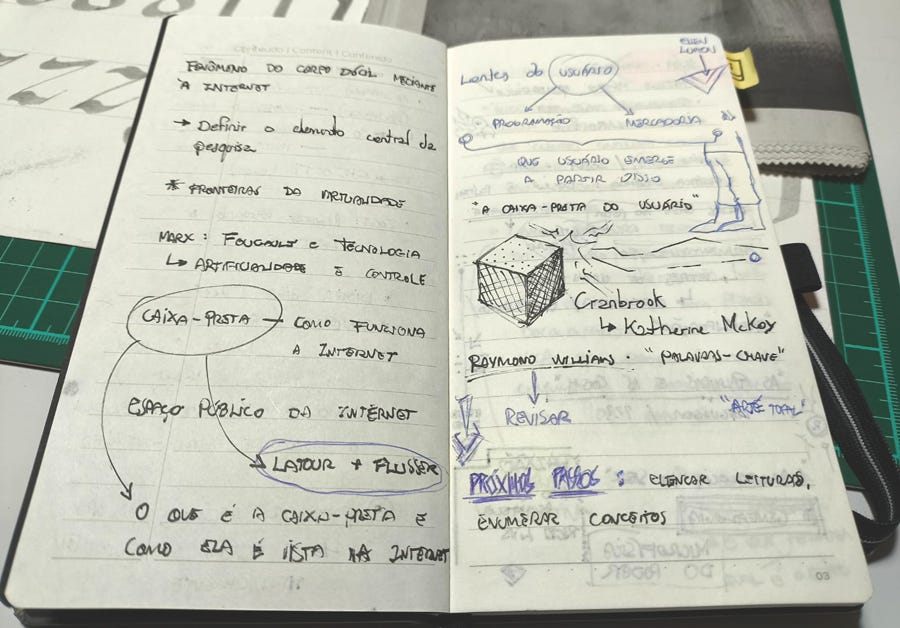 Conteúdo | Content | Contenido
FENÔMENO DO CORPO DÓCIL MEDIANTE
A INTERNET
→ Definir o elemento central da
pesquisa
* FRONTEIRAS DA VIRTUALIDADE
MARX: FOUCAULT E TECNOLOGIA
↳ ARTIFICIALIDADE E CONTROLE
CAIXA-PRETA — COMO FUNCIONA
A INTERNET
ESPAÇO PÚBLICO DA INTERNET
LATOUR + FLUSSER
O QUE É A CAIXA-PRETA E
COMO ELA É VISTA NA INTERNET
ELLEN
LUPTON
Lentes do USUÁRIO
PROGRAMAÇÃO MERCADORIA
QUE USUÁRIO EMERGE
A PARTIR DISSO
"A CAIXA-PRETA DO USUÁRIO"
Cranbrook
↳ Katherine McKoy
RAYMOND WILLIAMS · "PALAVAS-CHAVE"
REVISAR
"ARTE TOTAL"
PRÓXIMOS PASSOS: ELENCAR LEITURAS,
ENUMERAR CONCEITOS
MICROFÍSICA
DO PODER
03